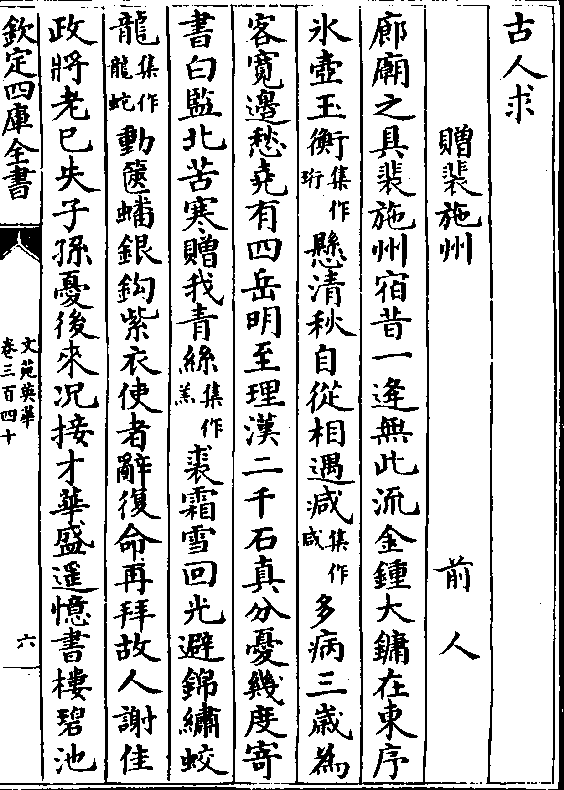 古人求
贈裴施州 前人
廊廟之具裴施州宿昔一逢無此流金鍾大鏞在東序
氷壺玉衡集作珩懸清秋自從相遇减集作感多病三歲為
客寛邊愁堯有四岳明至理漢二千石真分憂幾度寄
書白鹽北苦寒贈我青絲集作羔裘霜雪回光避錦繡蛟
龍集作龍蛇動篋蟠銀鈎紫衣使者辭復命再拜故人謝佳
政將老已失子孫憂後來况接才華盛遥憶書樓碧池
欽定四庫全書
文苑英華
卷三百四十
六